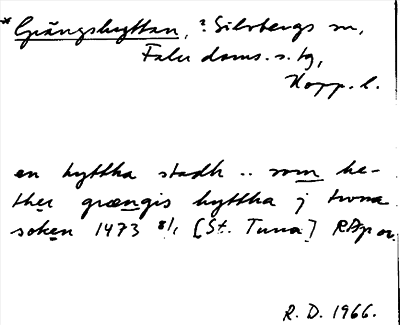 *Grängshyttan, ? Silvbergs sn,
Falu doms. s. tg,
Kopp. l.
en hyttha stadh .. som he-
ther grængis hyttha j tvna
soken 1473 8/1 [St. Tuna] RAp or.
R. D. 1966.